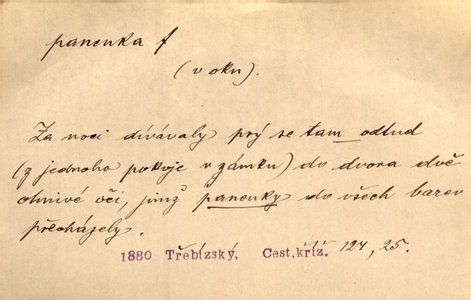 panenka f
(v oku).
Za noci dívávaly prý se tam odtud
(z jednoho pokoje v zámku) do dvora dvě
ohnivé oči, jimž panenky do všech barev
přecházely.
1880 Třebízský. Cest.kříž. 124, 25.